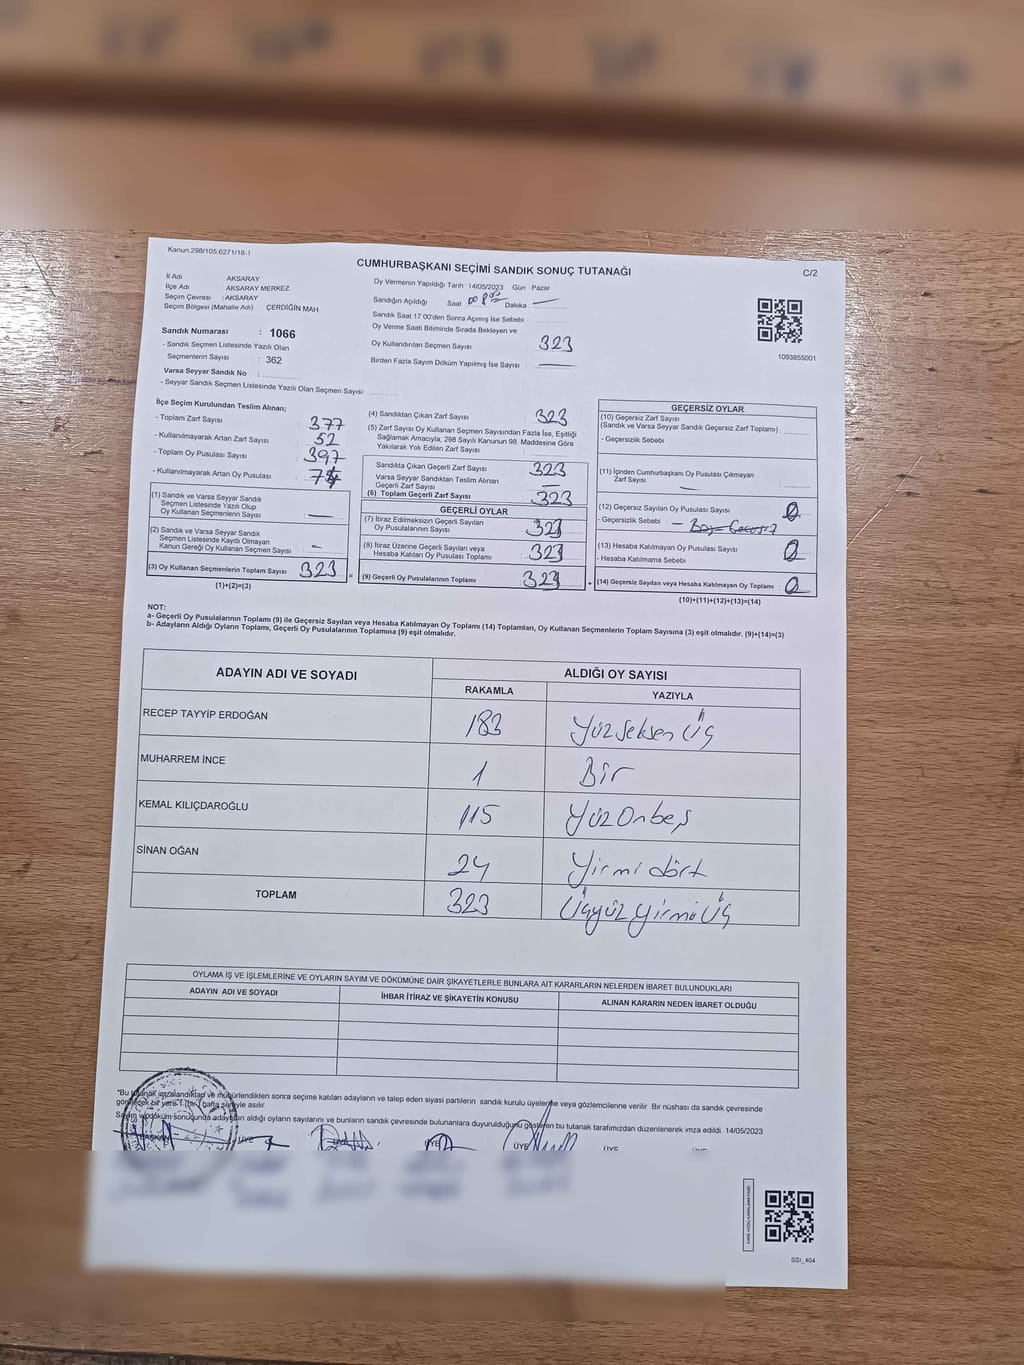 Kanun:298/105,6271/18-1
CUMHURBAŞKANI SEÇİMİ SANDIK SONUÇ TUTANAĞI
C/2
İl Adı AKSARAY
İlçe Adı AKSARAY MERKEZ
Seçim Çevresi : AKSARAY
Seçim Bölgesi (Mahalle Adı) : ÇERDİĞİN MAH
Sandık Numarası : 1066
- Sandık Seçmen Listesinde Yazılı Olan
Seçmenlerin Sayısı : 362
Varsa Seyyar Sandık No :
- Seyyar Sandık Seçmen Listesinde Yazılı Olan Seçmen Sayısı
Oy Vermenin Yapıldığı Tarih :14/05/2023 Gün Pazar
Sandığın Açıldığı Saat Dakika
Sandık Saat 17.00'den Sonra Açımış İse Sebebi
Oy Verme Saati Bitiminde Sırada Bekleyen ve
Oy Kullandırılan Seçmen Sayısı 323
Birden Fazla Sayım Döküm Yapılmış İse Sayısı
1093855001
İlçe Seçim Kurulundan Teslim Alınan;
- Toplam Zarf Sayısı : 377
- Kullanılmayarak Artan Zarf Sayısı : 52
- Toplam Oy Pusulası Sayısı : 397
- Kullanılmayarak Artan Oy Pusulası :
(1) Sandık ve Varsa Seyyar Sandık
Seçmen Listesinde Yazılı Olup
Oy Kullanan Seçmenlerin Sayısı
(2) Sandık ve Varsa Seyyar Sandık
Seçmen Listesinde Kayıtlı Olmayan
Kanun Gereği Oy Kullanan Seçmen Sayısı
(3) Oy Kullanan Seçmenlerin Toplam Sayısı 323 =
(1)+(2)=(3)
(4) Sandıktan Çıkan Zarf Sayısı 323
(5) Zarf Sayısı Oy Kullanan Seçmen Sayısından Fazla İse, Eşitliği
Sağlamak Amacıyla; 298 Sayılı Kanunun 98. Maddesine Göre
Yakılarak Yok Edilen Zarf Sayısı
Sandıkta Çıkan Geçerli Zarf Sayısı 323
Varsa Seyyar Sandıktan Teslim Alınan
Geçerli Zarf Sayısı
(6) Toplam Geçerli Zarf Sayısı 323
GEÇERLİ OYLAR
(7) İtiraz Edilmeksizin Geçerli Sayılan
Oy Pusulalarının Sayısı 323
(8) İtiraz Üzerine Geçerli Sayılan veya
Hesaba Katılan Oy Pusulası Toplamı 323
(9) Geçerli Oy Pusulalarının Toplamı 323 +
GEÇERSİZ OYLAR
(10) Geçersiz Zarf Sayısı
(Sandık ve Varsa Seyyar Sandık Geçersiz Zarf Toplamı) :
- Geçersizlik Sebebi
(11) İçinden Cumhurbaşkanı Oy Pusulası Çıkmayan
Zarf Sayısı
(12) Geçersiz Sayılan Oy Pusulası Sayısı 0
- Geçersizlik Sebebi
(13) Hesaba Katılmayan Oy Pusulası Sayısı 0
- Hesaba Katılmama Sebebi
(14) Geçersiz Sayılan veya Hesaba Katılmayan Oy Toplamı : 0
(10)+(11)+(12)+(13)=(14)
NOT:
a- Geçerli Oy Pusulalarının Toplamı (9) ile Geçersiz Sayılan veya Hesaba Katılmayan Oy Toplamı (14) Toplamları, Oy Kullanan Seçmenlerin Toplam Sayısına (3) eşit olmalıdır. (9)+(14)=(3)
b- Adayların Aldığı Oyların Toplamı, Geçerli Oy Pusulalarının Toplamına (9) eşit olmalıdır.
ADAYIN ADI VE SOYADI
ALDIĞI OY SAYISI
RAKAMLA YAZIYLA
RECEP TAYYİP ERDOĞAN 183 Yüz Seksen Üç
MUHARREM İNCE 1 Bir
KEMAL KILIÇDAROĞLU 115 Yüz Onbeş
SİNAN OĞAN 24 Yirmi dört
TOPLAM 323 Üçyüz yirmi Üç
OYLAMA İŞ VE İŞLEMLERİNE VE OYLARIN SAYIM VE DÖKÜMÜNE DAİR ŞİKAYETLERLE BUNLARA AİT KARARLARIN NELERDEN İBARET BULUNDUKLARI
ADAYIN ADI VE SOYADI İHBAR İTİRAZ VE ŞİKAYETİN KONUSU ALINAN KARARIN NEDEN İBARET OLDUĞU
*Bu tutanak imzalandıktan ve mühürlendikten sonra seçime katılan adayların ve talep eden siyasi partilerin sandık kurulu üyelerine veya gözlemcilerine verilir Bir nüshası da sandık çevresinde
görülecek bir yere 1 (bir) hafta süreyle asılır
Sayım ve döküm sonucunda adayların aldığı oyların sayılarını ve bunların sandık çevresinde bulunanlara duyurulduğunu gösteren bu tutanak tarafımızdan düzenlenerek imza edildi. 14/05/2023
BAŞKAN ÜYE ÜYE ÜYE ÜYE ÜYE
SSI_404